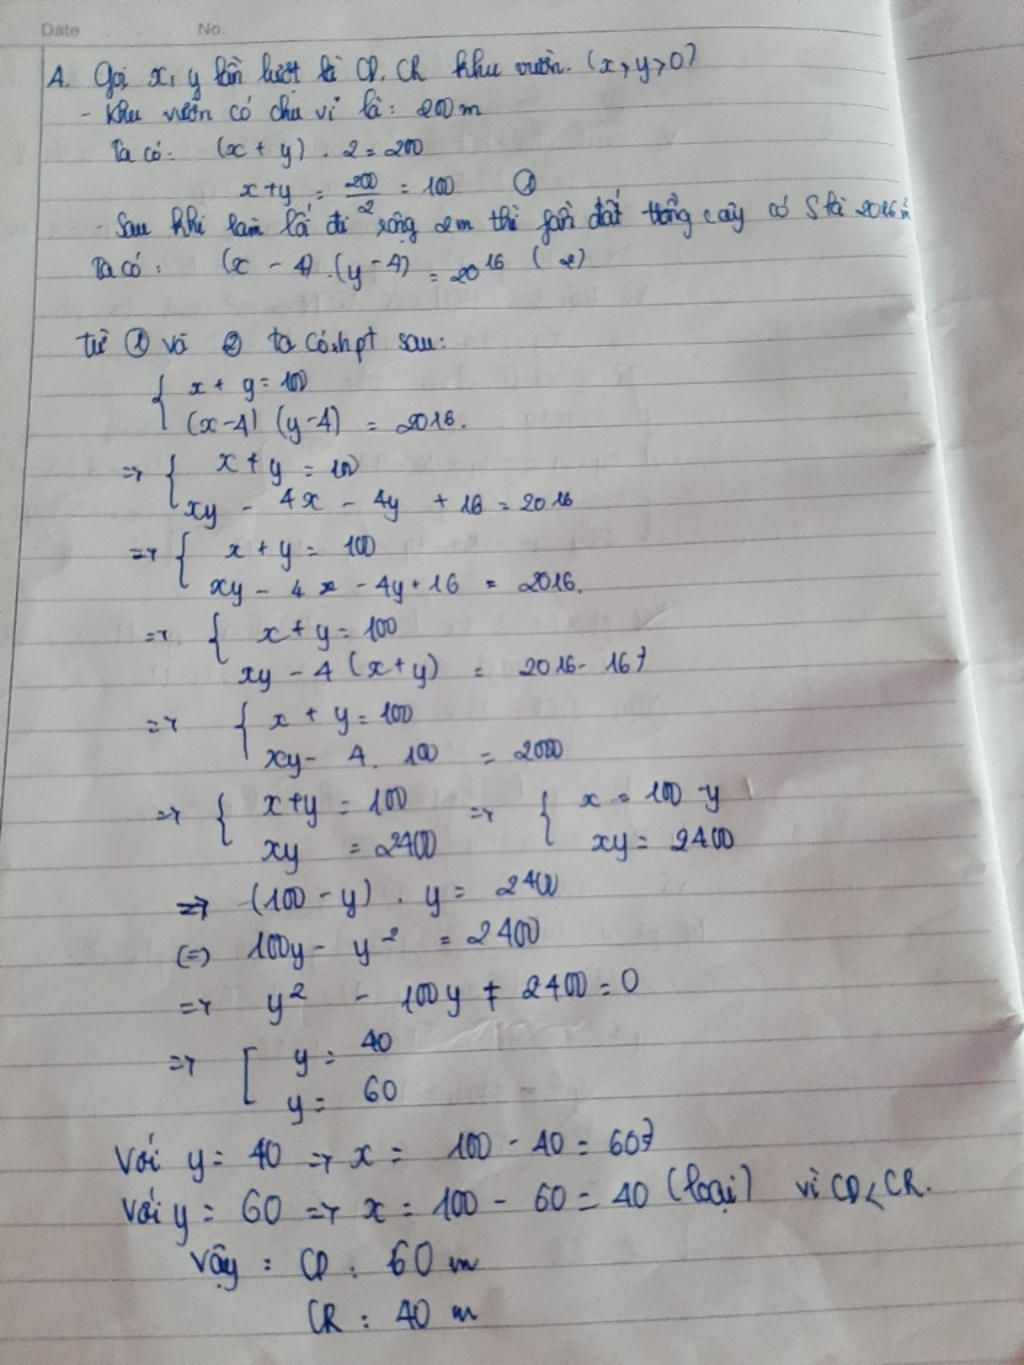 Date No.
A. Gọi x, y lần lượt là CD, CR khu vườn. (x > y > 0)
- Khu vườn có chu vi là: 200 m
Ta có: (x + y) . 2 = 200
x + y = 200/2 = 100 ①
- Sau khi làm lối đi rộng 2m thì fần đất trồng cây có S là 2016 m²
Ta có: (x - 4) . (y - 4) = 2016 (2)
từ ① và ② ta có hpt sau:
{ x + y = 100
(x - 4) (y - 4) = 2016.
=> { x + y = 100
xy - 4x - 4y + 16 = 2016
=> { x + y = 100
xy - 4x - 4y + 16 = 2016.
=> { x + y = 100
xy - 4 (x + y) = 2016 - 16
=> { x + y = 100
xy - 4 . 100 = 2000
=> { x + y = 100 => { x = 100 - y
xy = 2400 xy = 2400
=> (100 - y) . y = 2400
(=) 100y - y² = 2400
=> y² - 100y + 2400 = 0
=> [ y = 40
y = 60
Với y = 40 => x = 100 - 40 = 60
Với y = 60 => x = 100 - 60 = 40 (loại) vì CD < CR.
Vậy : CD : 60 m
CR : 40 m